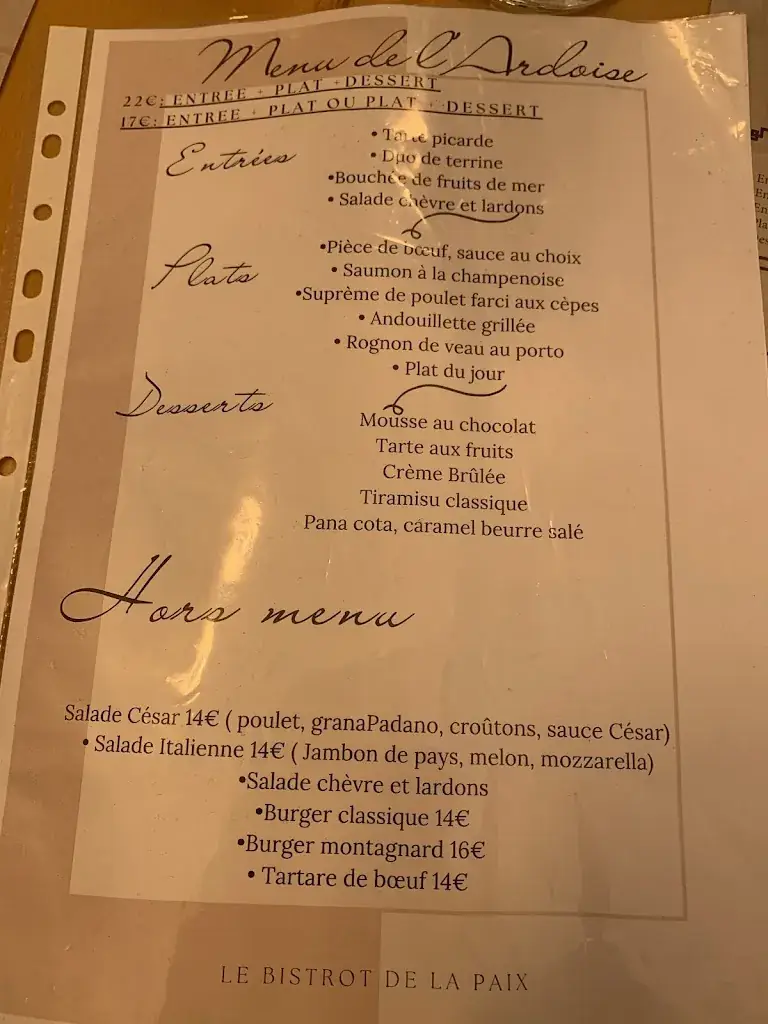 Menu de l'Ardoise
22€: ENTREE + PLAT +DESSERT
17€: ENTREE + PLAT OU PLAT + DESSERT
Entrées
• Tarte picarde
• Duo de terrine
•Bouchée de fruits de mer
• Salade chèvre et lardons
Plats
•Pièce de bœuf, sauce au choix
• Saumon à la champenoise
•Suprème de poulet farci aux cèpes
• Andouillette grillée
• Rognon de veau au porto
• Plat du jour
Desserts
Mousse au chocolat
Tarte aux fruits
Crème Brûlée
Tiramisu classique
Pana cota, caramel beurre salé
Hors menu
Salade César 14€ ( poulet, granaPadano, croûtons, sauce César)
• Salade Italienne 14€ ( Jambon de pays, melon, mozzarella)
•Salade chèvre et lardons
•Burger classique 14€
•Burger montagnard 16€
• Tartare de bœuf 14€
LE BISTROT DE LA PAIX